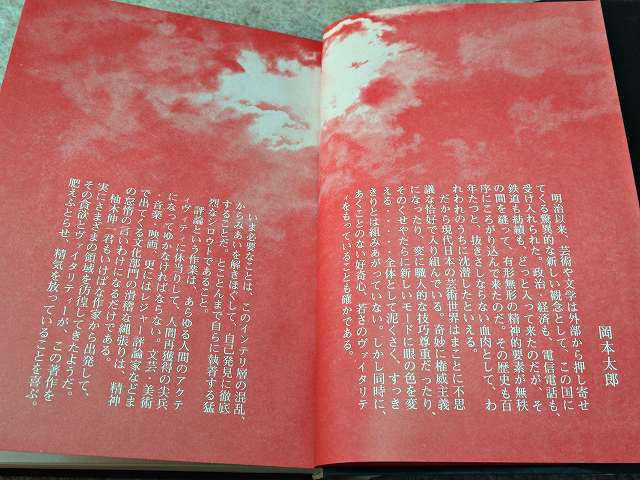 岡本太郎
明治以来、芸術や文学は外部から押し寄せ
てくる驚異的な新しい観念として、この国に
受け入れられた。政治、経済も、電信電話も、
鉄道も紡績も、どっと入って来たのだが、そ
の間を縫って、有形無形の精神的要素が無秩
序にころがり込んで来たのだ。その歴史も百
年たつと、抜きさしならない血肉として、わ
れわれのうちに沈潜したといえる。
だから現代日本の芸術世界はまことに不思
議な恰好で入り組んでいる。奇妙に権威主義
になったり、変に職人的な技巧尊重だったり、
そのくせやたらに新しいモードに眼の色を変
える‥‥‥全体として泥くさく、すっき
きりとは組みあがっていない。しかし同時に、
あくことのない好奇心、若さのヴァイタリテ
ィをもっていることも確かである。
いま必要なことは、このインテリ層の混乱、
からみあいを解きほぐして、自己発見に徹底
することだ。とことんまで自らに執着する猛
烈なシロウトであること。
評論という作業は、あらゆる人間のアクテ
ィヴィティに体当りして、人間再獲得の尖兵
になってゆかなければならない。文芸、美術
・音楽・映画、更にはレジャー評論家などま
で出てくる文化部門の滑稽な縄張りは、精神
の怠惰の言いわけになるだけである。
柚木伸一君もいけばな作家から出発して、
実にさまざまの領域を彷徨してきたようだ。
その貪欲とヴァイタリティーが、この著作を
肥えふとらせ、精気を放っていることを喜ぶ。